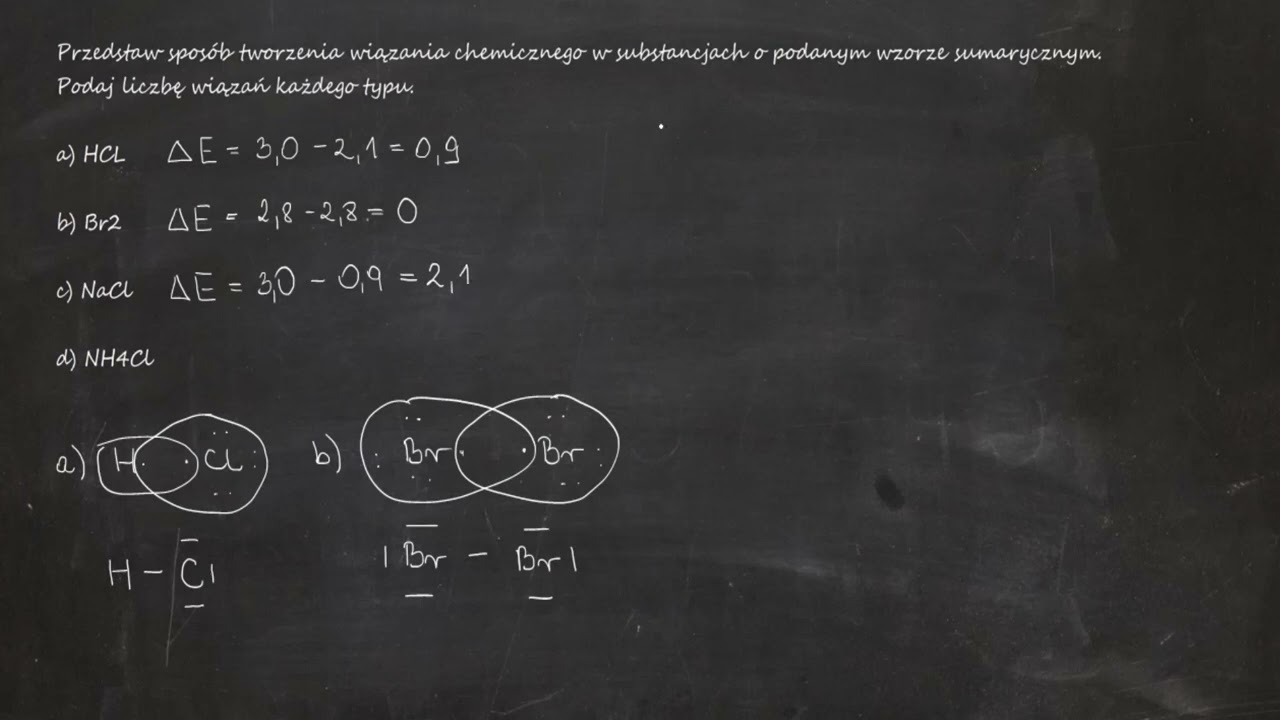 Przedstaw sposób tworzenia wiązania chemicznego w substancjach o podanym wzorze sumarycznym.
Podaj liczbę wiązań każdego typu.
a) HCL ΔE = 3,0 - 2,1 = 0,9
b) Br2 ΔE = 2,8 - 2,8 = 0
c) NaCl ΔE = 3,0 - 0,9 = 2,1
d) NH4Cl
a) H Cl b) Br Br
H - Cl Br - Br